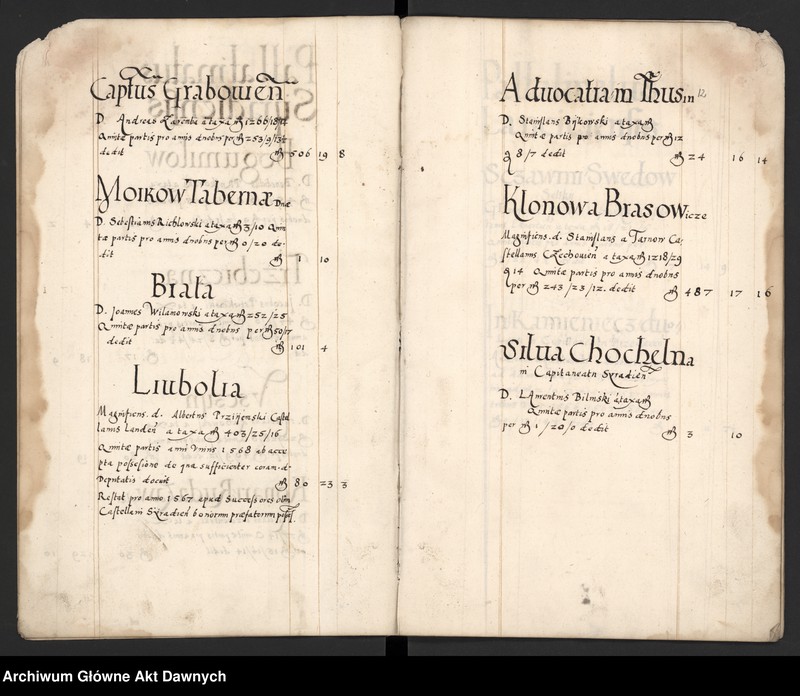 Captus Grabowień
D. Andreas Zaremba a taxa m 1266/18/
Quintæ partis pro annis duobus per m 253/9/
dedit m 506 19 8
Moikow Tabernæ Duæ
D. Sebestianus Richlowski a taxa m 3/10 Quin
tæ partis pro annis duobus per m 0/20 de
dit m 1 10
Biała
D. Joannes Wilamowski a taxa m 252/25
Quintæ partis pro annis duobus per m 50/
dedit m 101 4
Liubolia
Magnificus . d. Albertus Przijemski Castel
lanus Landeń a taxa m 403/25/16
Quintæ partis anni unius 1568 ab acce
pta possesione de qua sufficienter coram d
Deputatis docuit m 80 23 3
Restat pro anno 1567 apud Successores olim
Castellani Siradień bonorum præfatorum
Advocatia in Thusin 12
D. Stanislaus Bijkowski a taxa m
Quintæ partis pro annis duobus per m 12
g 8/7 dedit m 24 16 14
Klonowa Brasowicze
Magnificus . d. Stanislaus a Tarnow Ca
stellanus Czechowień a taxa m 1218/29
g 14 Quintæ partis pro annis duobus
per m 243/23/12. dedit m 487 17 16
Silva Chochelna
in Capitaneatu Siradień
D. Laurentius Bilinski a taxa m
Quintæ partis pro annis duobus
per m 1/20/0 dedit m 3 10
Archiwum Główne Akt Dawnych